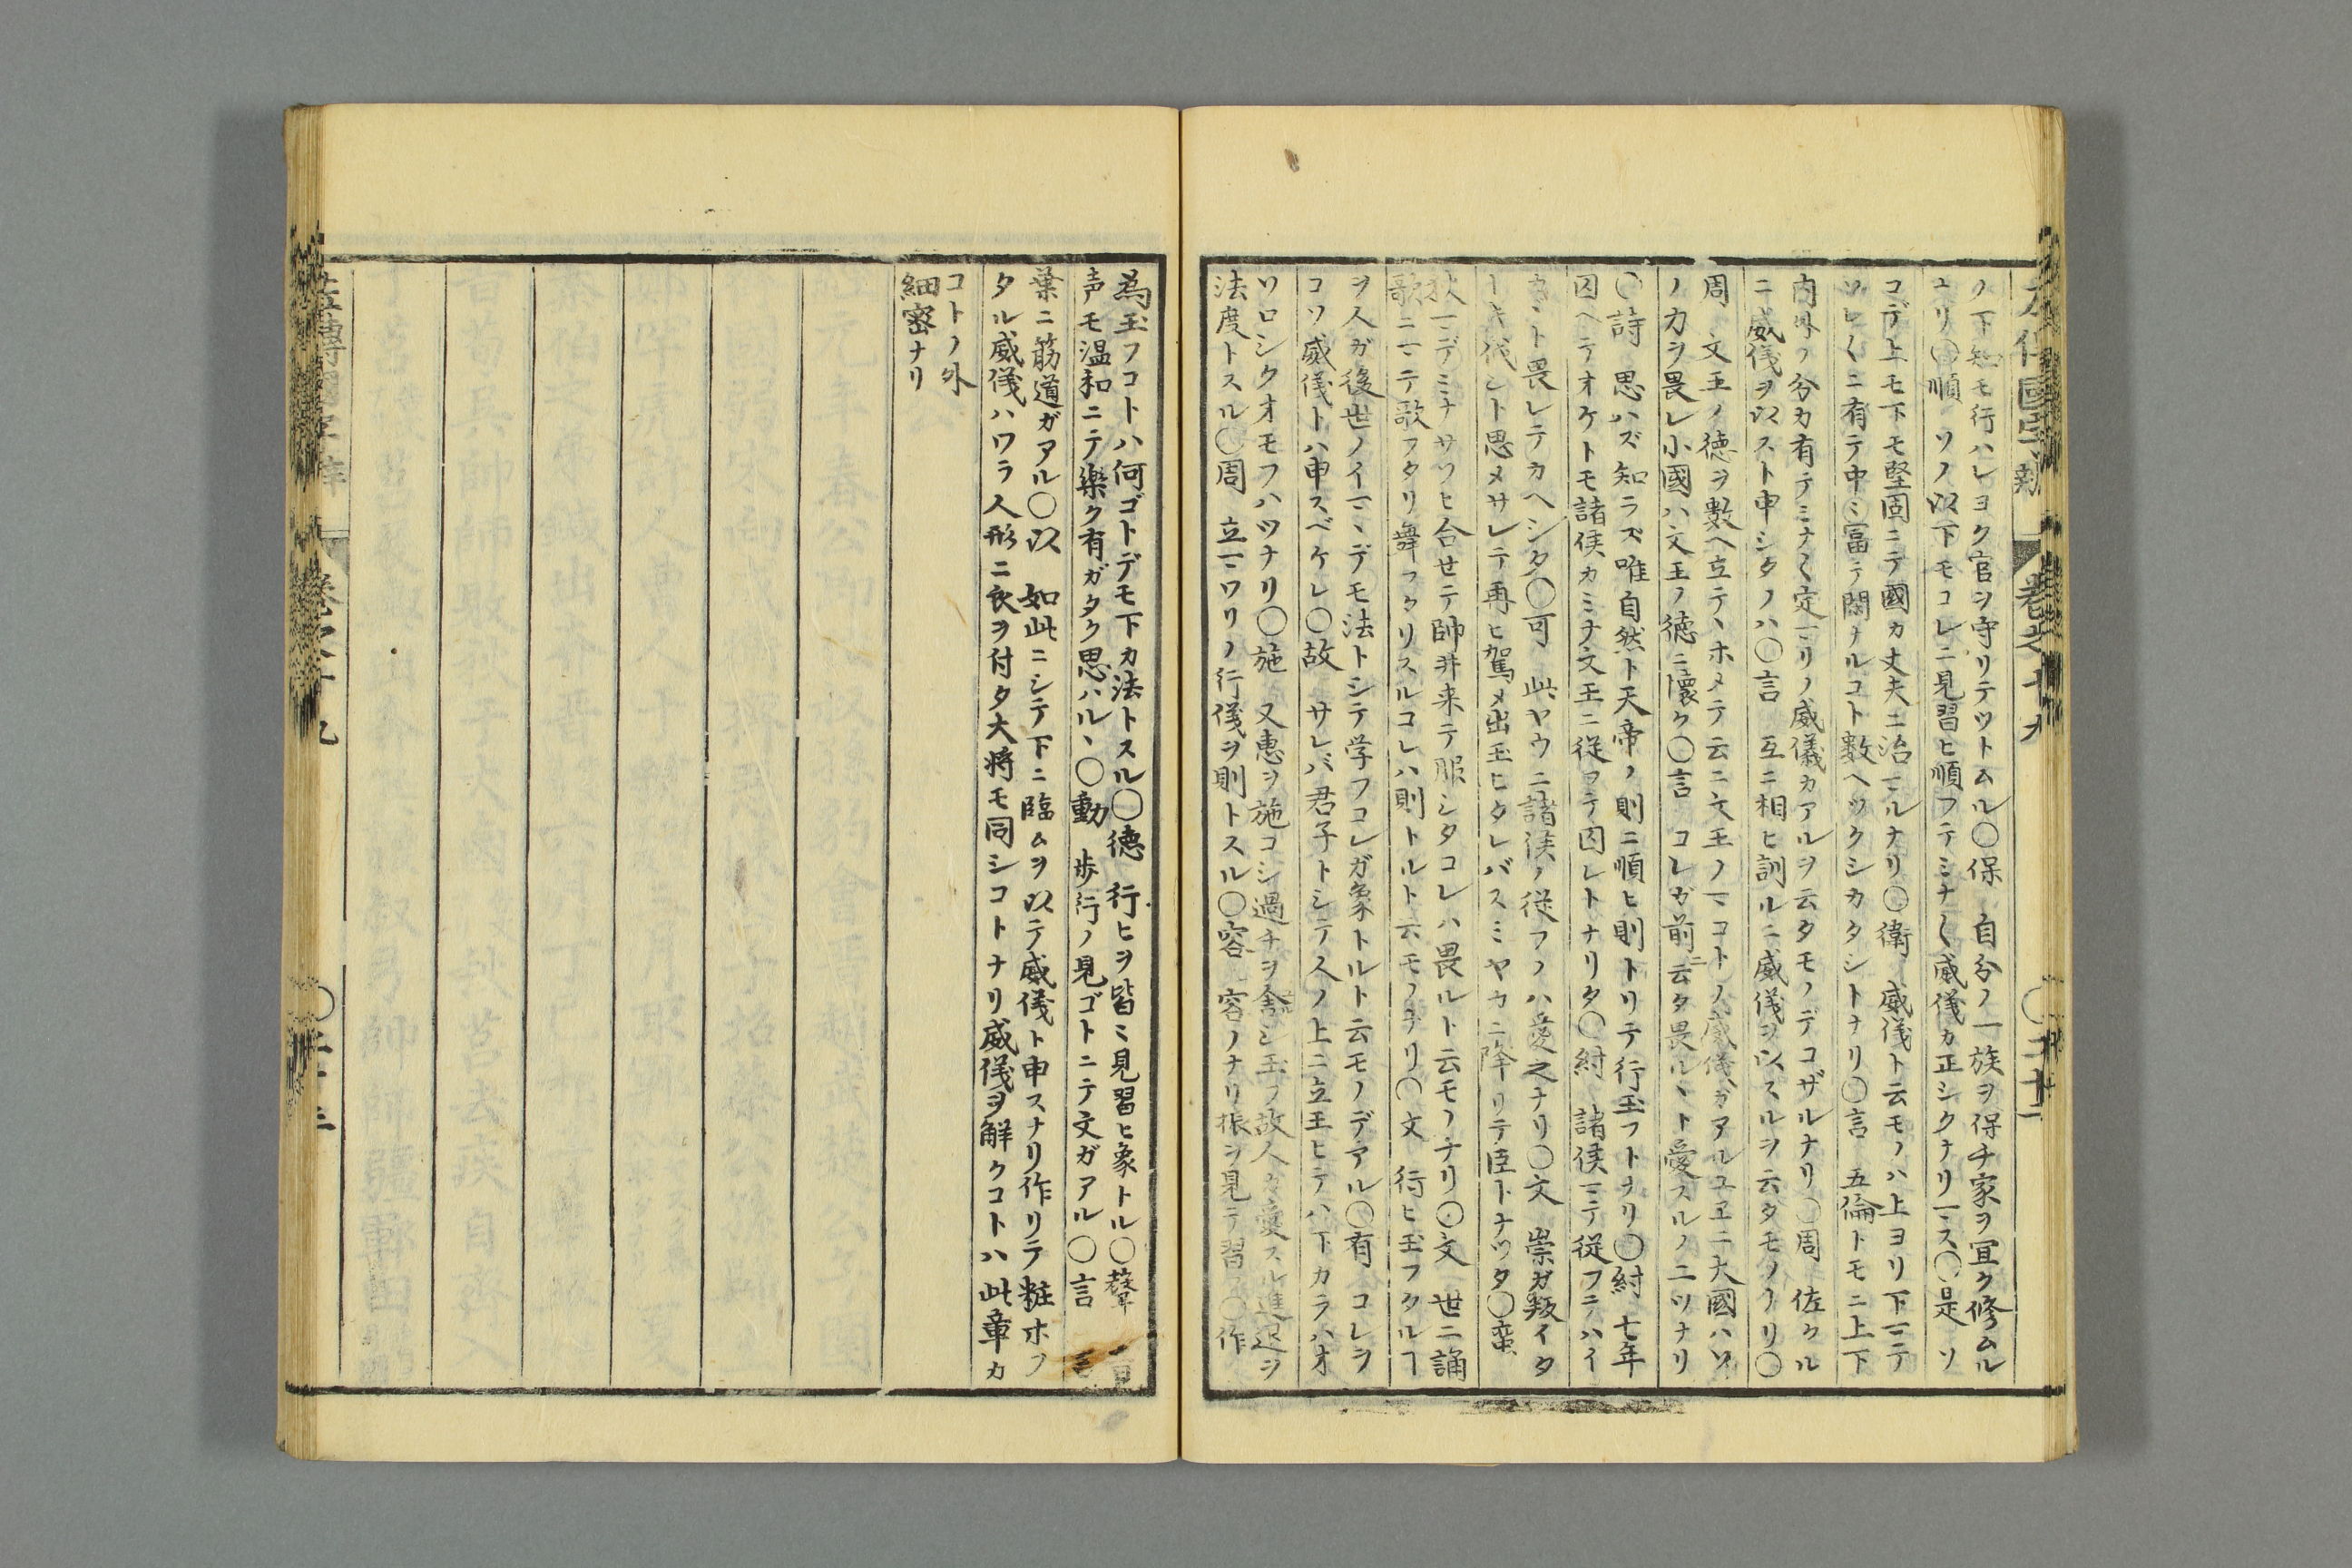 ノ下知モ行ハレヨク官ヲ守リテツトムル〇保 自分ノ一族ヲ保チ家ヲ宜ク修ムル
ユリ〇順 ソノ以下モコレニ見習ヒ順フテミナ〱威儀カ正シクナリマス〇是 ソ
コデ上モ下モ堅固ニテ國カ丈夫ニ治マルナリ〇衛 威儀ト云モノハ上ヨリ下マテ
ソレ〱ニ有テ中ミ冨テ閑ナルコト數ヘツクシカタシトナリ〇言 五倫トモニ上下
内外ノ分カ有テミナ〱定マリノ威儀カアルヲ云タモノデコザルナリ〇周 佐クル
ニ威儀ヲ以スト申シタノハ〇言 互ニ相ヒ訓ルニ威儀ヲ以スルヲ云タモノナリ〇
周 文王ノ徳ヲ數ヘ立テヽホメテ云ニ文王ノマコトノ威儀ガアルユヱニ大國ハソ
ノカヲ畏レ小國ハ文王ノ徳ニ懐ク〇言 コレガ前ニ云タ畏ルヽト愛スルノ二ツナリ
〇詩 思ハズ知ラズ唯自然ト天帝ノ則ニ順ヒ則トリテ行玉フトナリ〇紂 七年
囚ヘテオケトモ諸侯カミナ文王ニ従フテ囚レトナリタ〇紂 諸侯マテ従フテハイ
カヽト畏レテカヘシタ〇可 此ヤウニ諸侯ノ従フノハ愛之ナリ〇文 崇ガ叛イタ
伐シト思メサレテ再ヒ駕メ出玉ヒタレバスミヤカニ降リテ臣トナツタ〇蛮
狄マデミナサソヒ合せテ帥并来テ服シタコレハ畏ルト云モノナリ〇文 世ニ誦
歌ニマテ歌フタリ舞フタリスルコレハ則トルト云モノナリ〇文 行ヒ玉フタルヿ
ヲ人ガ後世ノイマヽデモ法トシテ学フコレガ象トルト云モノデアル〇有 コレヲ
コソ威儀トハ申スベケレ〇故 サレバ君子トシテ人ノ上ニ立玉ヒテハ下カラハオ
ソロシクオモフハツナリ〇施 又惠ヲ施コシ過チヲ舍シ玉フ故人カ愛スル進退ヲ
法度トスル〇周 立マワリノ行儀ヲ則トスル〇容 容ノナリ振ヲ見テ習フ〇作
左傳國字辯 巻之十九 〇二十二
為玉フコトハ何ゴトデモ下カ法トスル〇徳 行ヒヲ皆ミ見習ヒ象トル〇聲 音
声モ温和ニテ樂ク有ガタク思ハルヽ〇動 歩行ノ見ゴトニテ文ガアル〇言 言
葉ニ筋道ガアル〇以 如此ニシテ下ニ臨ムヲ以テ威儀ト申スナリ作リテ粧ホフ
タル威儀ハワラ人形ニ衣ヲ付タ大将モ同シコトナリ威儀ヲ解クコトハ此章カ
コトノ外
細密ナリ